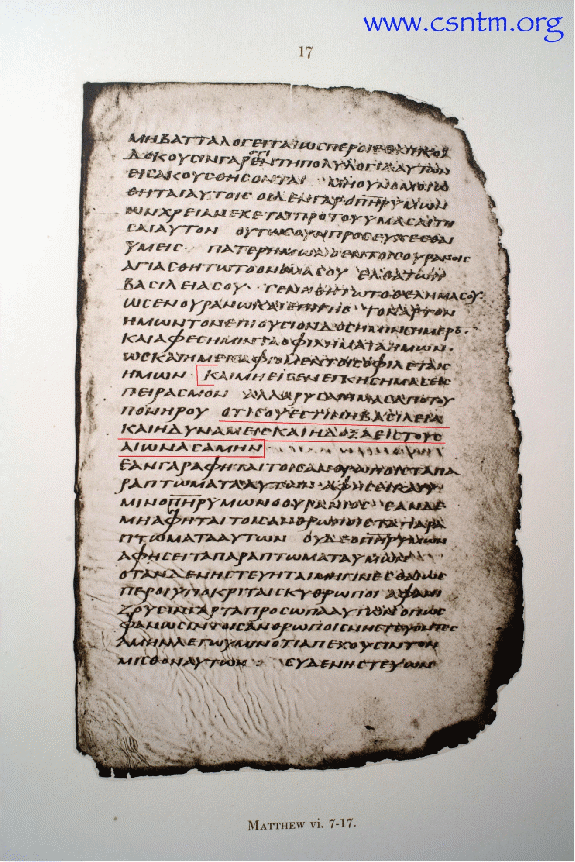 www.csntm.org
17
ΜΗΒΑΤΤΑΛΟΓΕΙΤΑΙΩΣΠΕΡΟΙΕΘΝΙΚΟΙ
ΔΟΚΟΥΣΙΝΓΑΡΟΤΙΕΝΤΗΠΟΛΥΛΟΓΙΑΑΥΤΩΝ
ΕΙΣΑΚΟΥΣΘΗΣΟΝΤΑΙ ΜΗΟΥΝΟΜΟΙΩ
ΘΗΤΑΙΑΥΤΟΙΣ ΟΙΔΕΝΓΑΡΟΠΗΡΥΜΩΝ
ΩΝΧΡΕΙΑΝΕΧΕΤΑΙΠΡΟΤΟΥΥΜΑΣΑΙΤΗ
ΣΑΙΑΥΤΟΝ ΟΥΤΩΣΟΥΝΠΡΟΣΕΥΧΕΣΘΑΙ
ΥΜΕΙΣ ΠΑΤΕΡΗΜΩΝΟΕΝΤΟΙΣΟΥΡΑΝΟΙΣ
ΑΓΙΑΣΘΗΤΩΤΟΟΝΟΜΑΣΟΥ ΕΛΘΑΤΩΗ
ΒΑΣΙΛΕΙΑΣΟΥ· ΓΕΝΗΘΗΤΩΤΟΘΕΛΗΜΑΣΟΥ·
ΩΣΕΝΟΥΡΑΝΩΚΑΙΕΠΙΓΗΣ ΤΟΝΑΡΤΟΝ
ΗΜΩΝΤΟΝΕΠΙΟΥΣΙΟΝΔΟΣΗΜΙΝΣΗΜΕΡΟ·
ΚΑΙΑΦΕΣΗΜΙΝΤΑΟΦΙΛΗΜΑΤΑΗΜΩΝ·
ΩΣΚΑΙΗΜΕΙΣΑΦΙΟΜΕΝΤΟΙΣΟΦΙΛΕΤΑΙΣ
ΗΜΩΝ ΚΑΙΜΗΕΙΣΕΝΕΓΚΗΣΗΜΑΣΕΙΣ
ΠΕΙΡΑΣΜΟΝ ΑΛΛΑΡΥΣΑΙΗΜΑΣΑΠΟΤΟΥ
ΠΟΝΗΡΟΥ ΟΤΙΣΟΥΕΣΤΙΝΗΒΑΣΙΛΕΙΑ
ΚΑΙΗΔΥΝΑΜΕΙΣΚΑΙΗΔΟΞΑΕΙΣΤΟΥΣ
ΑΙΩΝΑΣΑΜΗΝ
ΕΑΝΓΑΡΑΦΗΤΑΙΤΟΙΣΑΝΘΡΩΠΟΙΣΤΑΠΑ
ΡΑΠΤΩΜΑΤΑΑΥΤΩΝ ΑΦΗΣΕΙΚΑΙΥ
ΜΙΝΟΠΗΡΥΜΩΝΟΟΥΡΑΝΙΟΣ ΕΑΝΔΕ
ΜΗΑΦΗΤΑΙΤΟΙΣΑΝΘΡΩΠΟΙΣΤΑΠΑΡΑ
ΠΤΩΜΑΤΑΑΥΤΩΝ ΟΥΔΕΟΠΗΡΥΜΩΝ
ΑΦΗΣΕΙΤΑΠΑΡΑΠΤΩΜΑΤΑΥΜΩΝ
ΟΤΑΝΔΕΝΗΣΤΕΥΗΤΑΙΜΗΓΙΝΕΣΘΑΙΩΣ
ΠΕΡΟΙΥΠΟΚΡΙΤΑΙΣΚΥΘΡΩΠΟΙ ΑΦΑΝΙ
ΖΟΥΣΙΝΓΑΡΤΑΠΡΟΣΩΠΑΑΥΤΩΝΟΠΩΣ
ΦΑΝΩΣΙΝΤΟΙΣΑΝΘΡΩΠΟΙΣΝΗΣΤΕΥΟΝΤΕΣ
ΑΜΗΝΛΕΓΩΥΜΙΝΟΤΙΑΠΕΧΟΥΣΙΝΤΟΝ
ΜΙΣΘΟΝΑΥΤΩΝ ΣΥΔΕΝΗΣΤΕΥΩΝ
MATTHEW vi. 7-17.